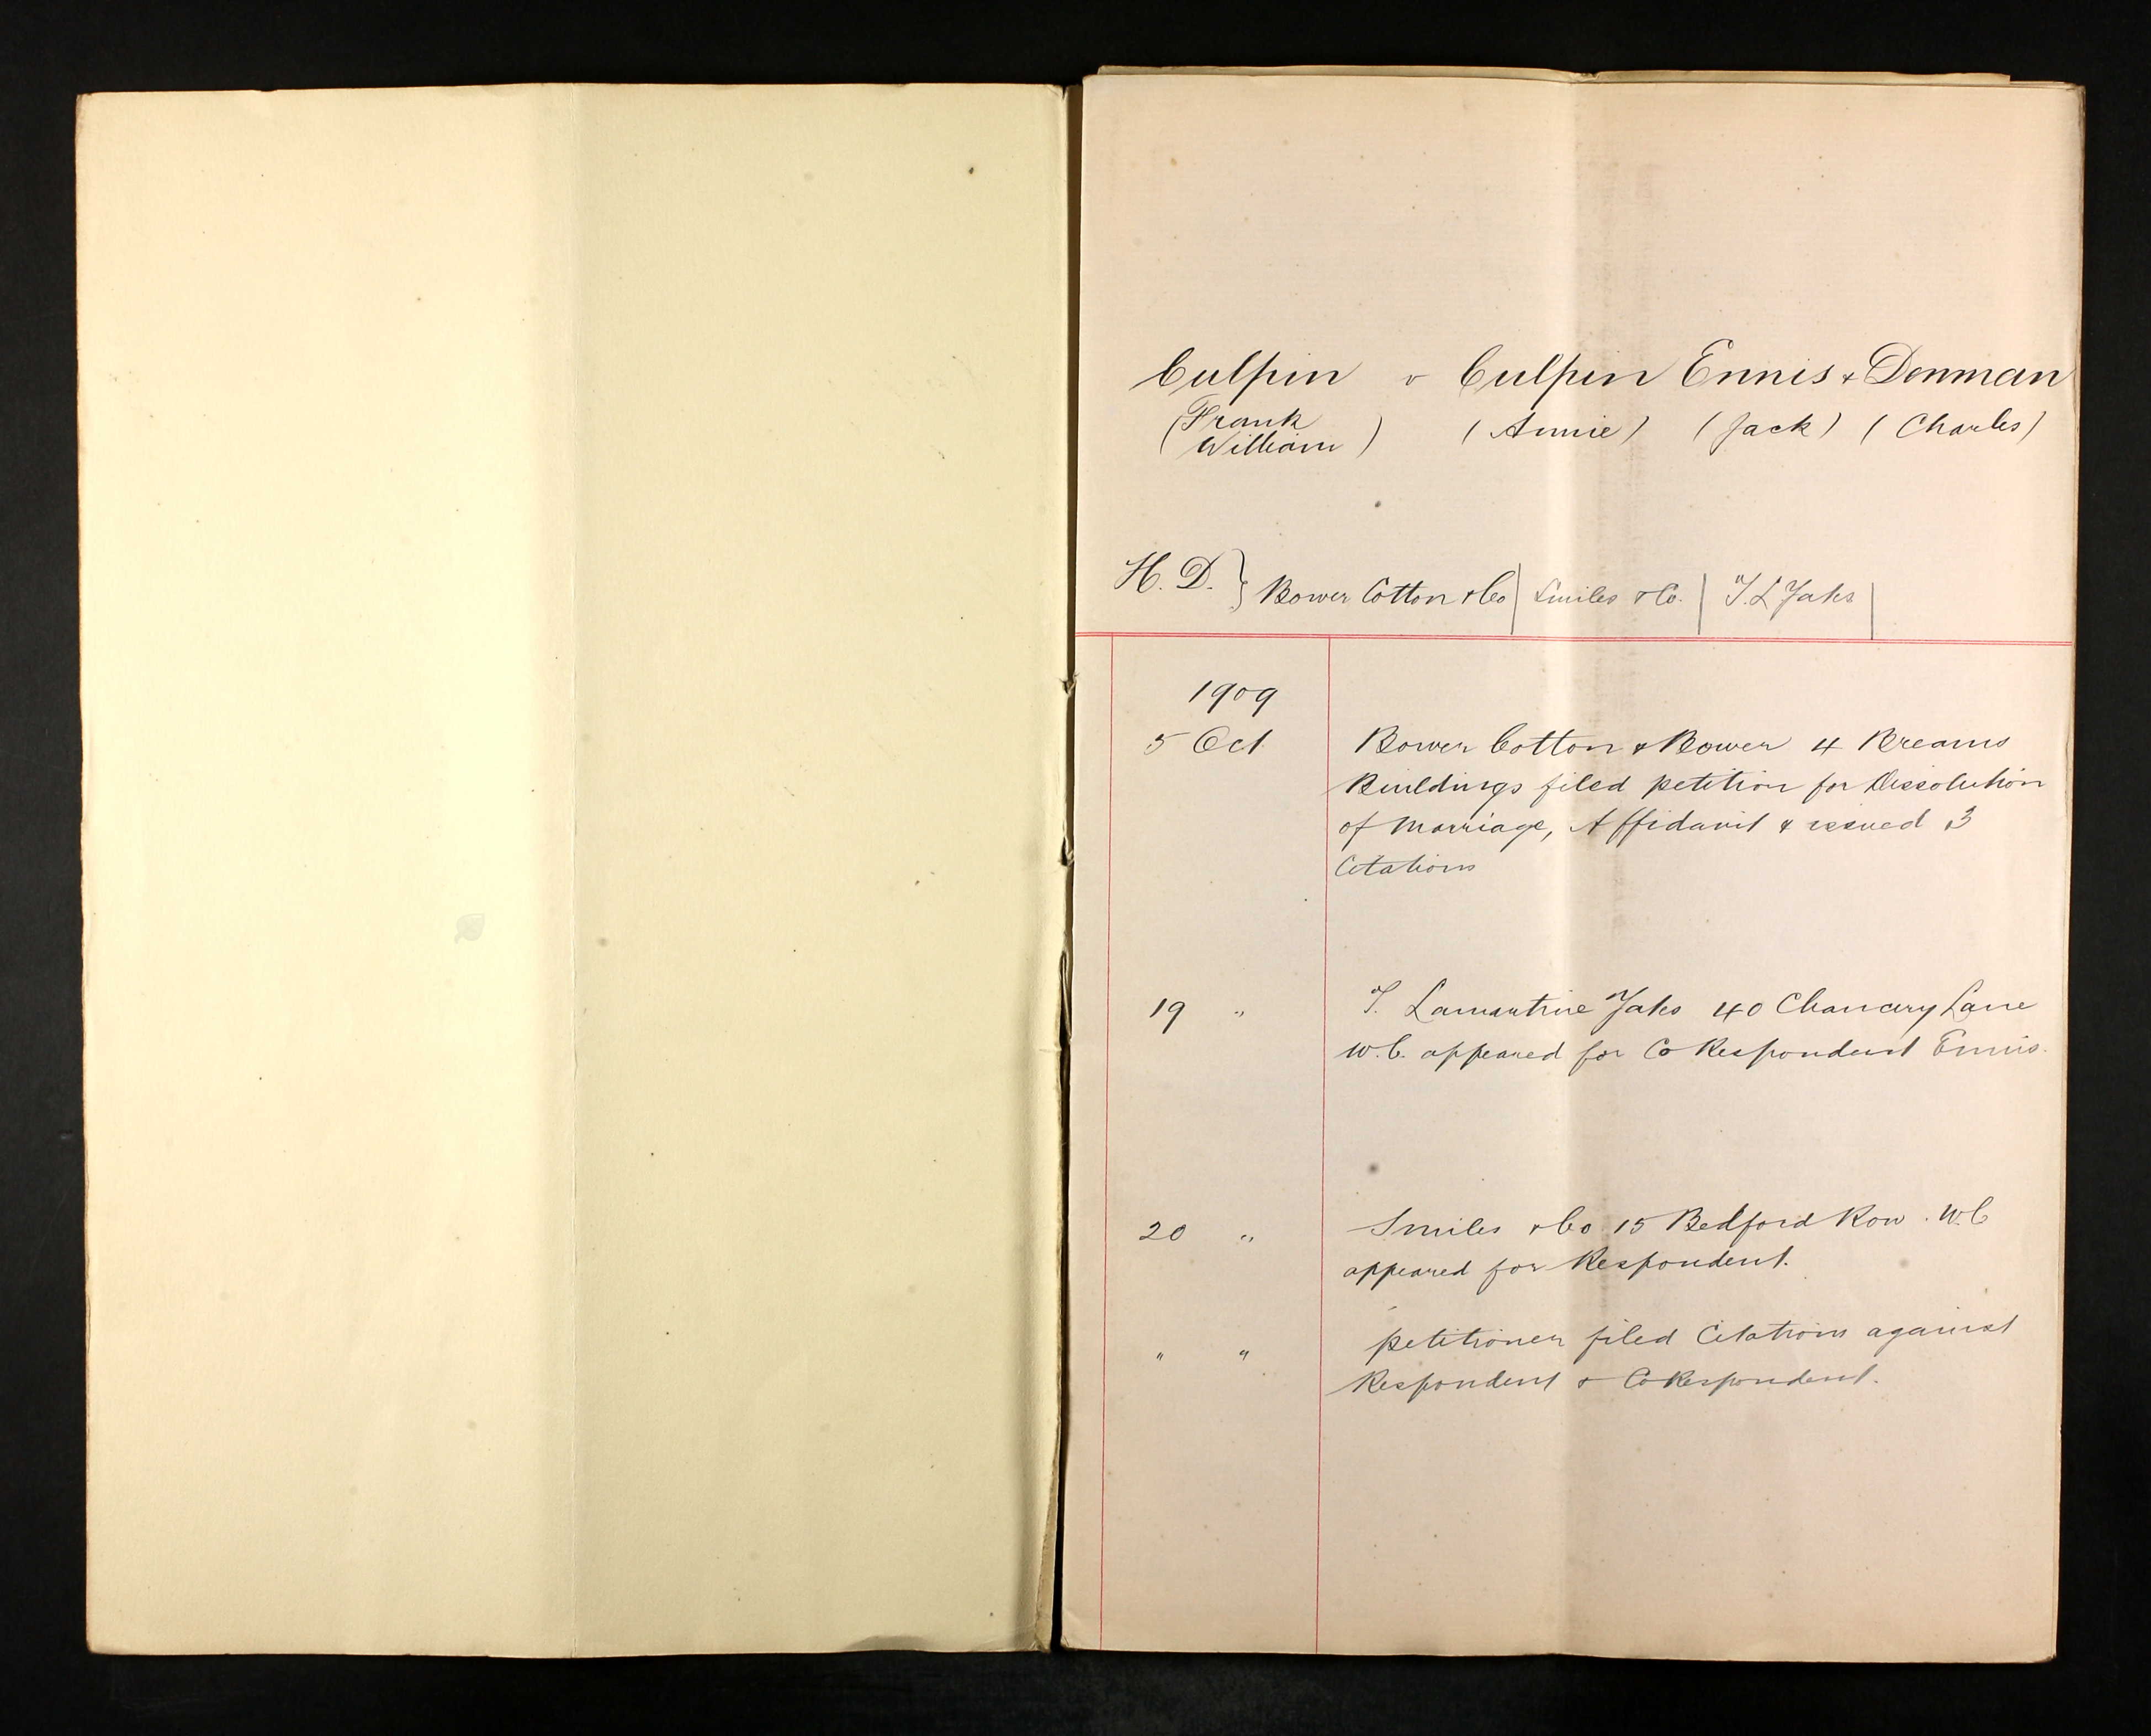 Culpin v Culpin Ennis & Denman
(Frank William) (Annie) (Jack) (Charles)
H. D. } Bower Cotton & Co | Smiles & Co. | T. L Yates |
1909
5 Oct Bower Cotton & Bower 4 Breams
Buildings filed petition for Dissolution
of Marriage, Affidavit & issued 3
Citations
19 " T. Lamartine Yates 40 Chancery Lane
W.C. appeared for Co Respondent Ennis.
20 " Smiles & Co 15 Bedford Row . W.C
appeared for Respondent.
" " petitioner filed Citations against
Respondent & CoRespondent.